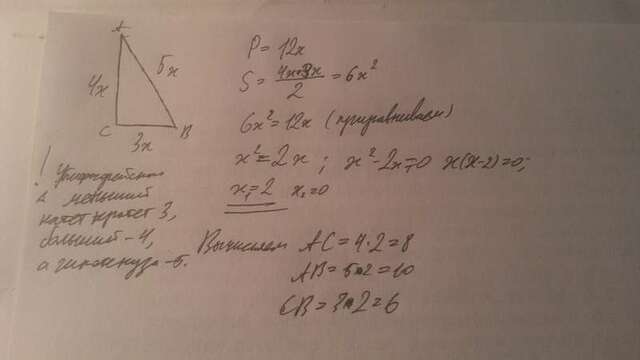 A
4x
5x
C
3x
B
P = 12x
S = 4x·3x / 2 = 6x²
6x² = 12x (приравниваем)
x² = 2x ; x² - 2x = 0 x(x-2)=0;
x₁ = 2 x₂ = 0
!
меньший
катет кратен 3,
больший - 4,
а гипотенуза - 5.
Вычисляем AC = 4·2 = 8
AB = 5·2 = 10
CB = 3·2 = 6